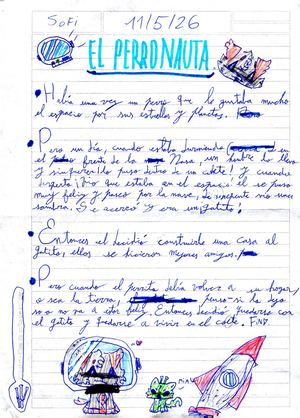 Sofi 11/5/26
EL PERRONAUTA
• Había una vez un perro que le gustaba mucho
el espacio, por sus estrellas y planetas.
• Pero un día, cuando estaba durmiendo en
el frente de la Nasa, un hombre lo llevo
y sin querer lo puso dentro de un cohete! y cuando
desperto ¡Vio que estaba en el espacio! el se puso
muy feliz y paseo por la nave, de repente vio una
sombra. Se acerco y era un gatito!
• Entonces el decidió construirle una casa al
gatito, ellos se hicieron mejores amigos.
• Pero cuando el perrito debia volver a su hogar,
o sea la tierra, penso si lo dejo
solo no va a estar feliz. Entonces decidió quedarse con
el gatito y quedarse a vivir en el cohete. FIN